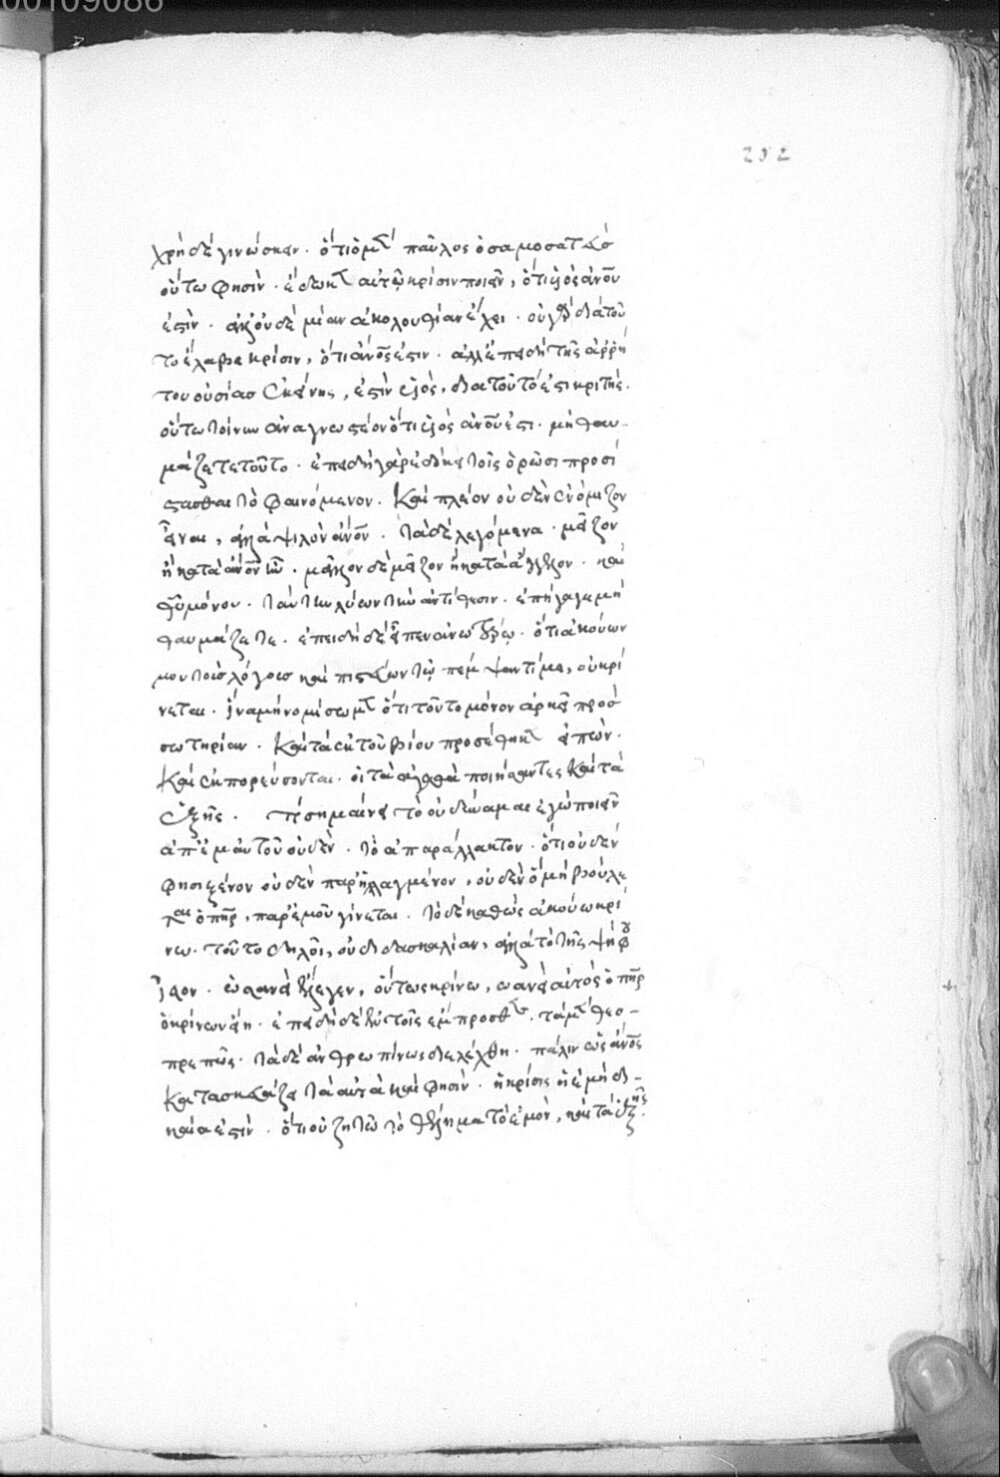 00109086
252
χρὴ δὲ γινώσκειν. ὅτι ὁ μὲν παῦλος ὁ σαμοσατεὺς
οὕτω φησὶν. ἔδωκεν αὐτῷ κρίσιν ποιεῖν, ὅτι υἱὸς ἀνου
ἐστὶν. ἀλλ' οὐδὲ μίαν ἀκολουθίαν ἔχει. οὐ γὰρ διὰ τοῦ
το ἔλαβε κρίσιν, ὅτι ἀνος ἐστιν. ἀλλ' ἐπειδὴ τῆς ἀρρή
του οὐσίας ἐκείνης, ἐστὶν υἱὸς, διὰ τοῦτό ἐστι κριτής.
οὕτω τοίνυν ἀναγνωστέον ὅτι υἱὸς ἀνου ἐστι. μὴ θαυ-
μάζετε τοῦτο. ἐπειδὴ γὰρ ἐδόκει τοῖς ὁρῶσι προσί
στασθαι τὸ φαινόμενον. καὶ πλέον οὐδὲν ἐνόμιζον
εἶναι, ἀλλὰ ψιλὸν ἀνον. τὰ δὲ λεγόμενα. μεῖζον
ἢ κατὰ ἀνον ἦν. μᾶλλον δὲ μεῖζον ἢ κατὰ ἄγγελον. καὶ
θυ μόνου. ταύτην λύων τὴν ἀντίθεσιν. ἐπήγαγε μὴ
θαυμάζετε. ἐπειδὴ δὲ εἶπεν ἀνωτέρω. ὅτι ὁ ἀκούων
μου τοὺς λόγους καὶ πιστεύων τῷ πέμψαντί με, οὐ κρί
νεται. ἵνα μὴ νομίσωμεν ὅτι τοῦτο μόνον ἀρκεῖ πρὸς
σωτηρίαν. καὶ τὰ ἐκ τοῦ βίου προσέθηκεν εἰπὼν.
καὶ ἐκπορεύσονται. οἱ τὰ ἀγαθὰ ποιήσαντες καὶ τὰ
ἑξῆς. τί σημαίνει τὸ οὐ δύναμαι ἐγὼ ποιεῖν
ἀπ' ἐμαυτοῦ οὐδὲν. τὸ ἀπαράλλακτον. ὅτι οὐδέν
φησι ξένον οὐδὲν παρηλλαγμένον, οὐδὲν ὃ μὴ βούλε
ται ὁ πηρ, παρ' ἐμοῦ γίνεται. τὸ δὲ καθὼς ἀκούω κρί
νω. τοῦτο δηλοῖ, οὐ διδασκαλίαν, ἀλλὰ τὸ τῆς ψήφου
ἴσον. ὡσανεὶ ἔλεγεν, οὕτως κρίνω, ὡσανεὶ αὐτὸς ὁ πηρ
ὁ κρίνων εἴη. ἐπειδὴ δὲ ἐν τοῖς ἔμπροσθεν. τὰ μὲν θεο-
πρεπῶς. τὰ δὲ ἀνθρωπίνως διελέχθη. πάλιν ὡς ἀνος
κατασκευάζει τὰ αὐτὰ καὶ φησιν. ἡ κρίσις ἡ ἐμὴ δι-
καία ἐστὶν. ὅτι οὐ ζητῶ τὸ θέλημα τὸ ἐμὸν, καὶ τὰ ἑξῆς.